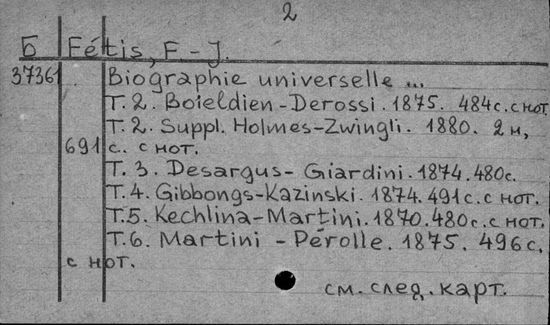 2
Б Fétis, F-J.
37361 Biographie universelle ...
Т. 2. Boieldien-Derossi. 1875. 484с. с нот.
Т. 2. Suppl. Holmes-Zwingli. 1880. 2н,
691 с. с нот.
Т. 3. Desargus-Giardini. 1874. 480с.
Т. 4. Gibbongs-Kazinski. 1874. 491с. с нот.
Т. 5. Kechlina-Martini. 1870. 480с. с нот.
Т. 6. Martini - Pérolle. 1875. 496с.
с нот.
см. след. карт.